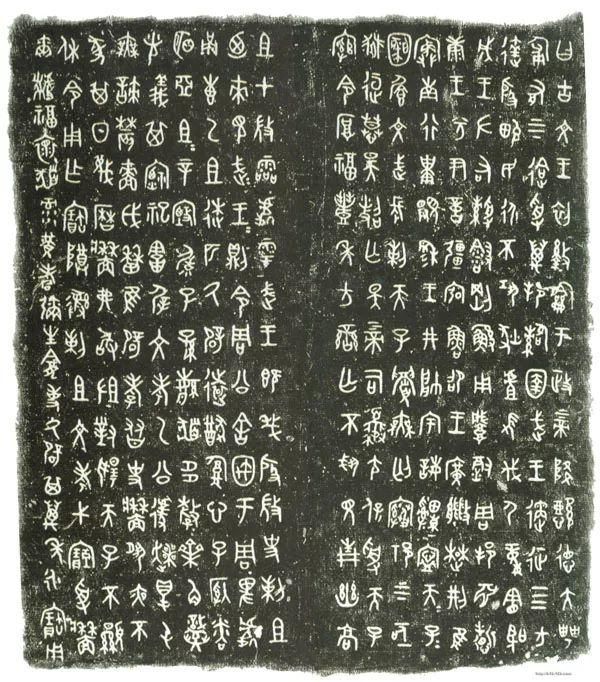 曰古文王初𢿐龢于政上帝降懿德大甹
匍有上下迨受萬邦𩁹圉武王遹征四方
達殷畯民永不巩狄虘𢼸伐夷童憲聖
成王左右綬䋣剛鯀用肇徹周邦淵哲
康王兮尹億疆宏魯卲王廣楚荊唯
寏南行祗景穆王井帥宇誨申寧天子
圝纘文武長剌天子眉無匄寋祁上下
亟熙桓慕昊照亡斁上帝司夒尢保受天子
綰令厚福豐年方蠻亡不𢦚見青幽高
祖在微靈處雩武王既𢦚殷微史剌祖
廼來見武王武王則令周公舍㝢于周卑處
甬惠乙祖逑匹厥辟遠猷腹心子納粦
明亞祖祖辛𢑴毓子孫繁祓多釐齊角熾光
義其禋祀害屖文考乙公遽爽得屯
無諫農穡戉曆唯辟孝友史牆夙夜不
㒸其日蔑曆牆弗敢沮對揚天子丕顯
休令用乍寶尊彝剌祖文考弋䆃受牆
爾䵼福懷祓彔黃耇彌生龕事厥辟其萬年永寶用